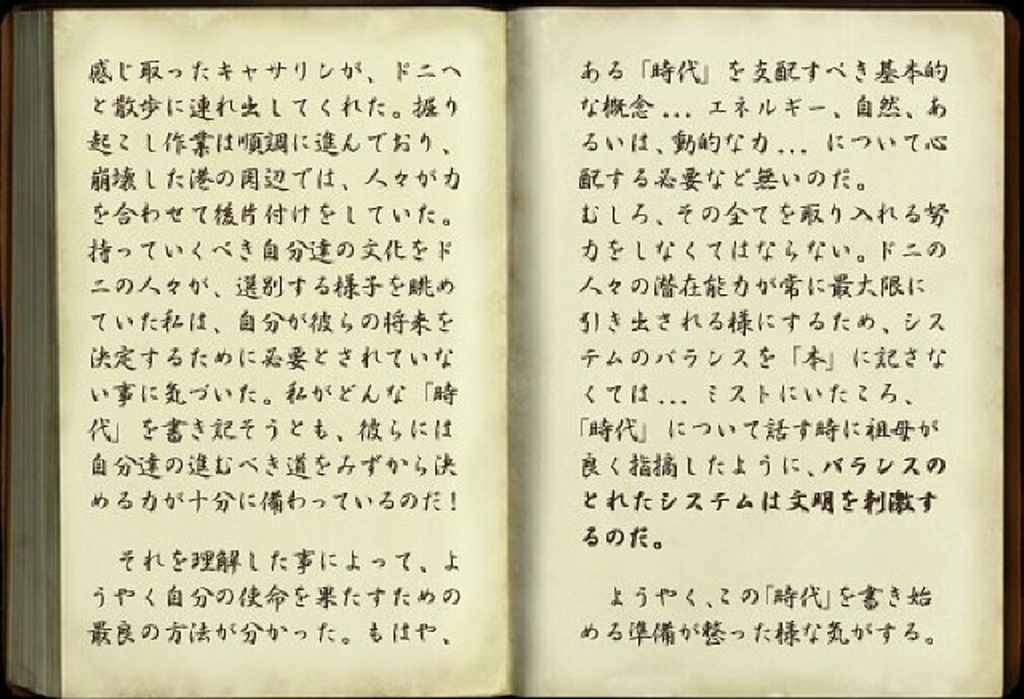 感じ取ったキャサリンが、ドニへ
と散歩に連れ出してくれた。掘り
起こし作業は順調に進んでおり、
崩壊した港の周辺では、人々が力
を合わせて後片付けをしていた。
持っていくべき自分達の文化をド
ニの人々が、選別する様子を眺め
ていた私は、自分が彼らの将来を
決定するために必要とされていな
い事に気づいた。私がどんな「時
代」を書き記そうとも、彼らには
自分達の進むべき道をみずから決
める力が十分に備わっているのだ!
それを理解した事によって、よ
うやく自分の使命を果たすための
最良の方法が分かった。もはや、
ある「時代」を支配すべき基本的
な概念...エネルギー、自然、あ
るいは、動的な力...について心
配する必要など無いのだ。
むしろ、その全てを取り入れる努
力をしなくてはならない。ドニの
人々の潜在能力が常に最大限に
引き出される様にするため、シス
テムのバランスを「本」に記さな
くては...ミストにいたころ、
「時代」について話す時に祖母が
良く指摘したように、バランスの
とれたシステムは文明を刺激す
るのだ。
ようやく、この「時代」を書き始
める準備が整った様な気がする。